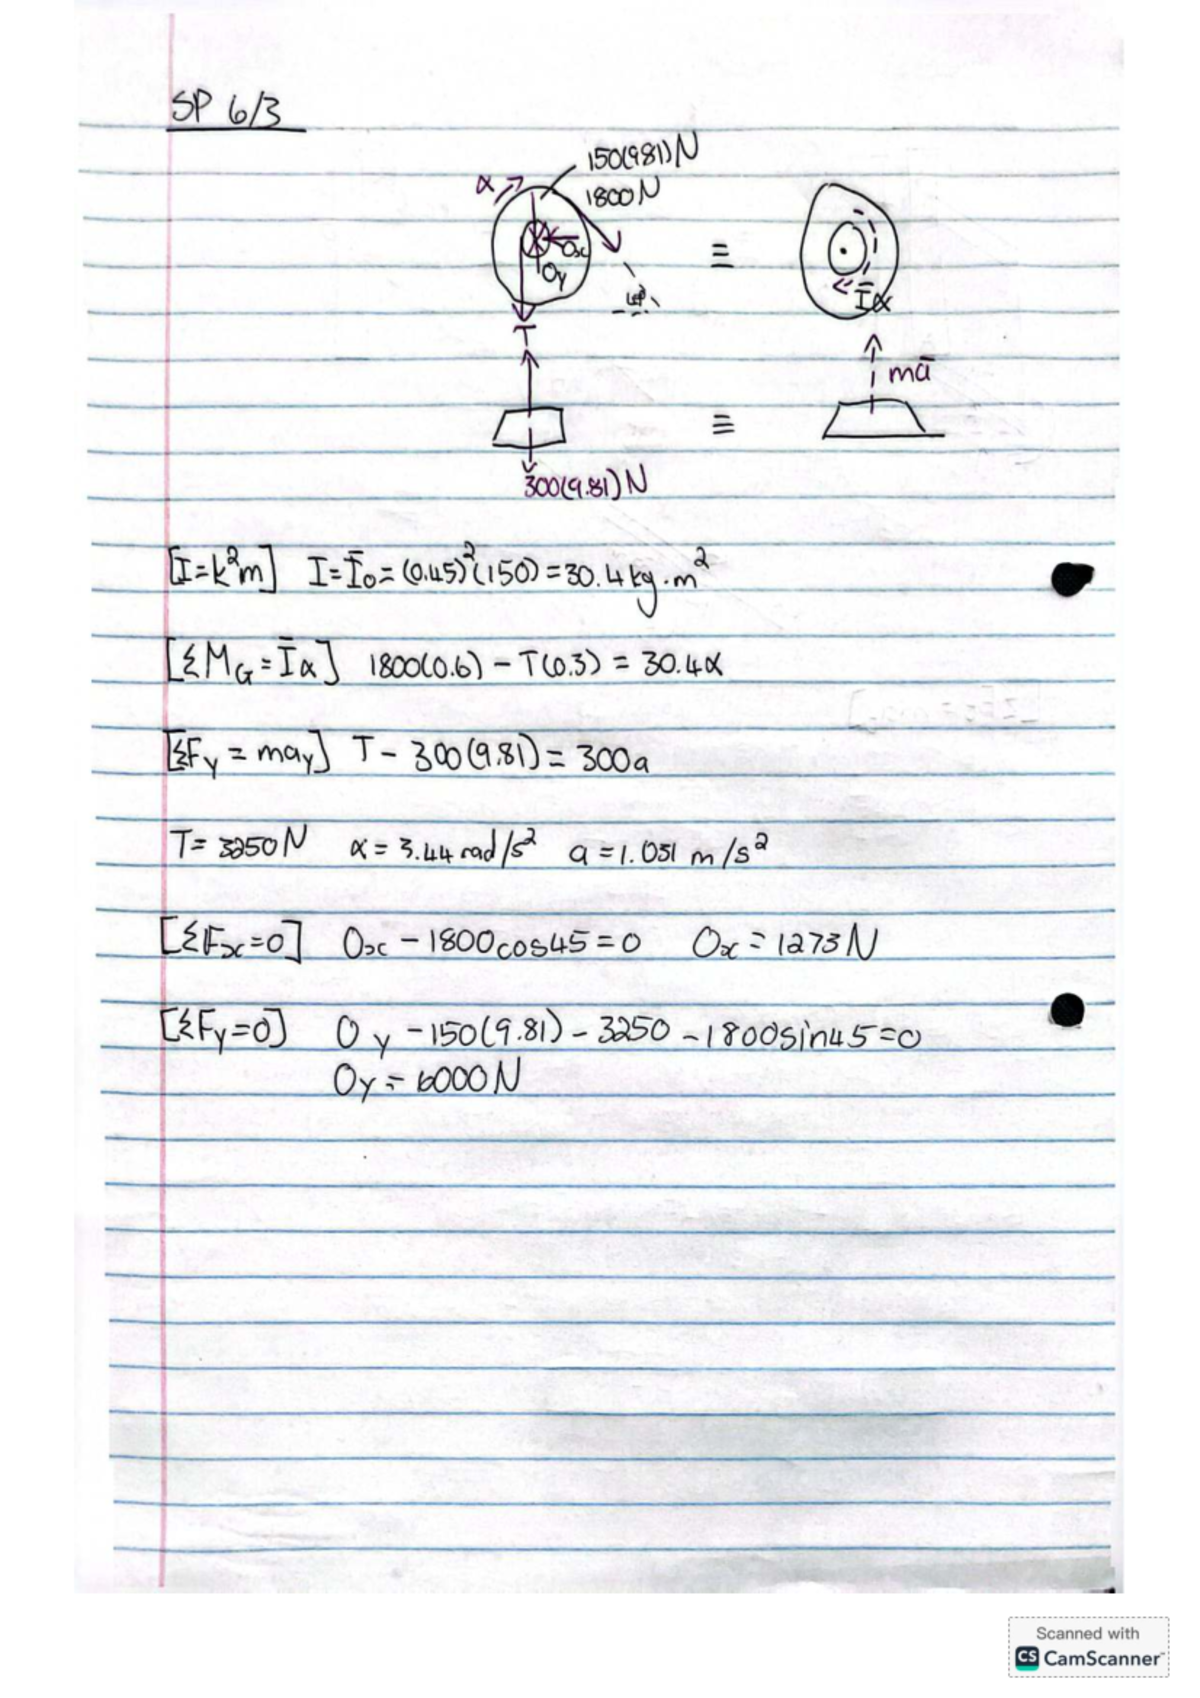 SP 6/3
150(981)N
α
1800N
Ox
Oy
≡
Īα
T
mā
≡
300(9.81)N
[I=k²m] I=Īo=(0.45)²(150)=30.4kg.m²
[ΣM_G=Īα] 1800(0.6) – T(0.3) = 30.4α
[ΣFy = may] T – 300(9.81) = 300a
T= 3250N α = 3.44 rad/s² a = 1.031 m/s²
[ΣFx=0] Ox – 1800cos45=0 Ox = 1273N
[ΣFy=0] Oy –150(9.81) – 3250 –1800sin45=0
Oy = 6000N
Scanned with
CS CamScanner